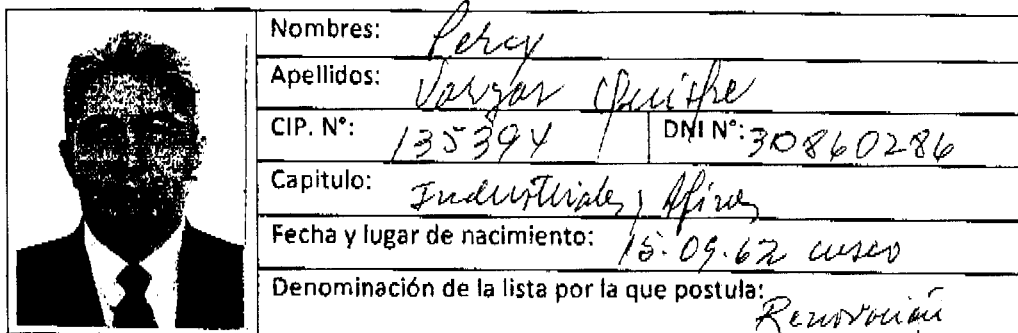 Nombres: Percy
Apellidos: Vargas Quispe
CIP. N°: 135394 DNI N°: 30860286
Capitulo: Industriales y Afines
Fecha y lugar de nacimiento: 15.09.62 cusco
Denominación de la lista por la que postula: Renovación